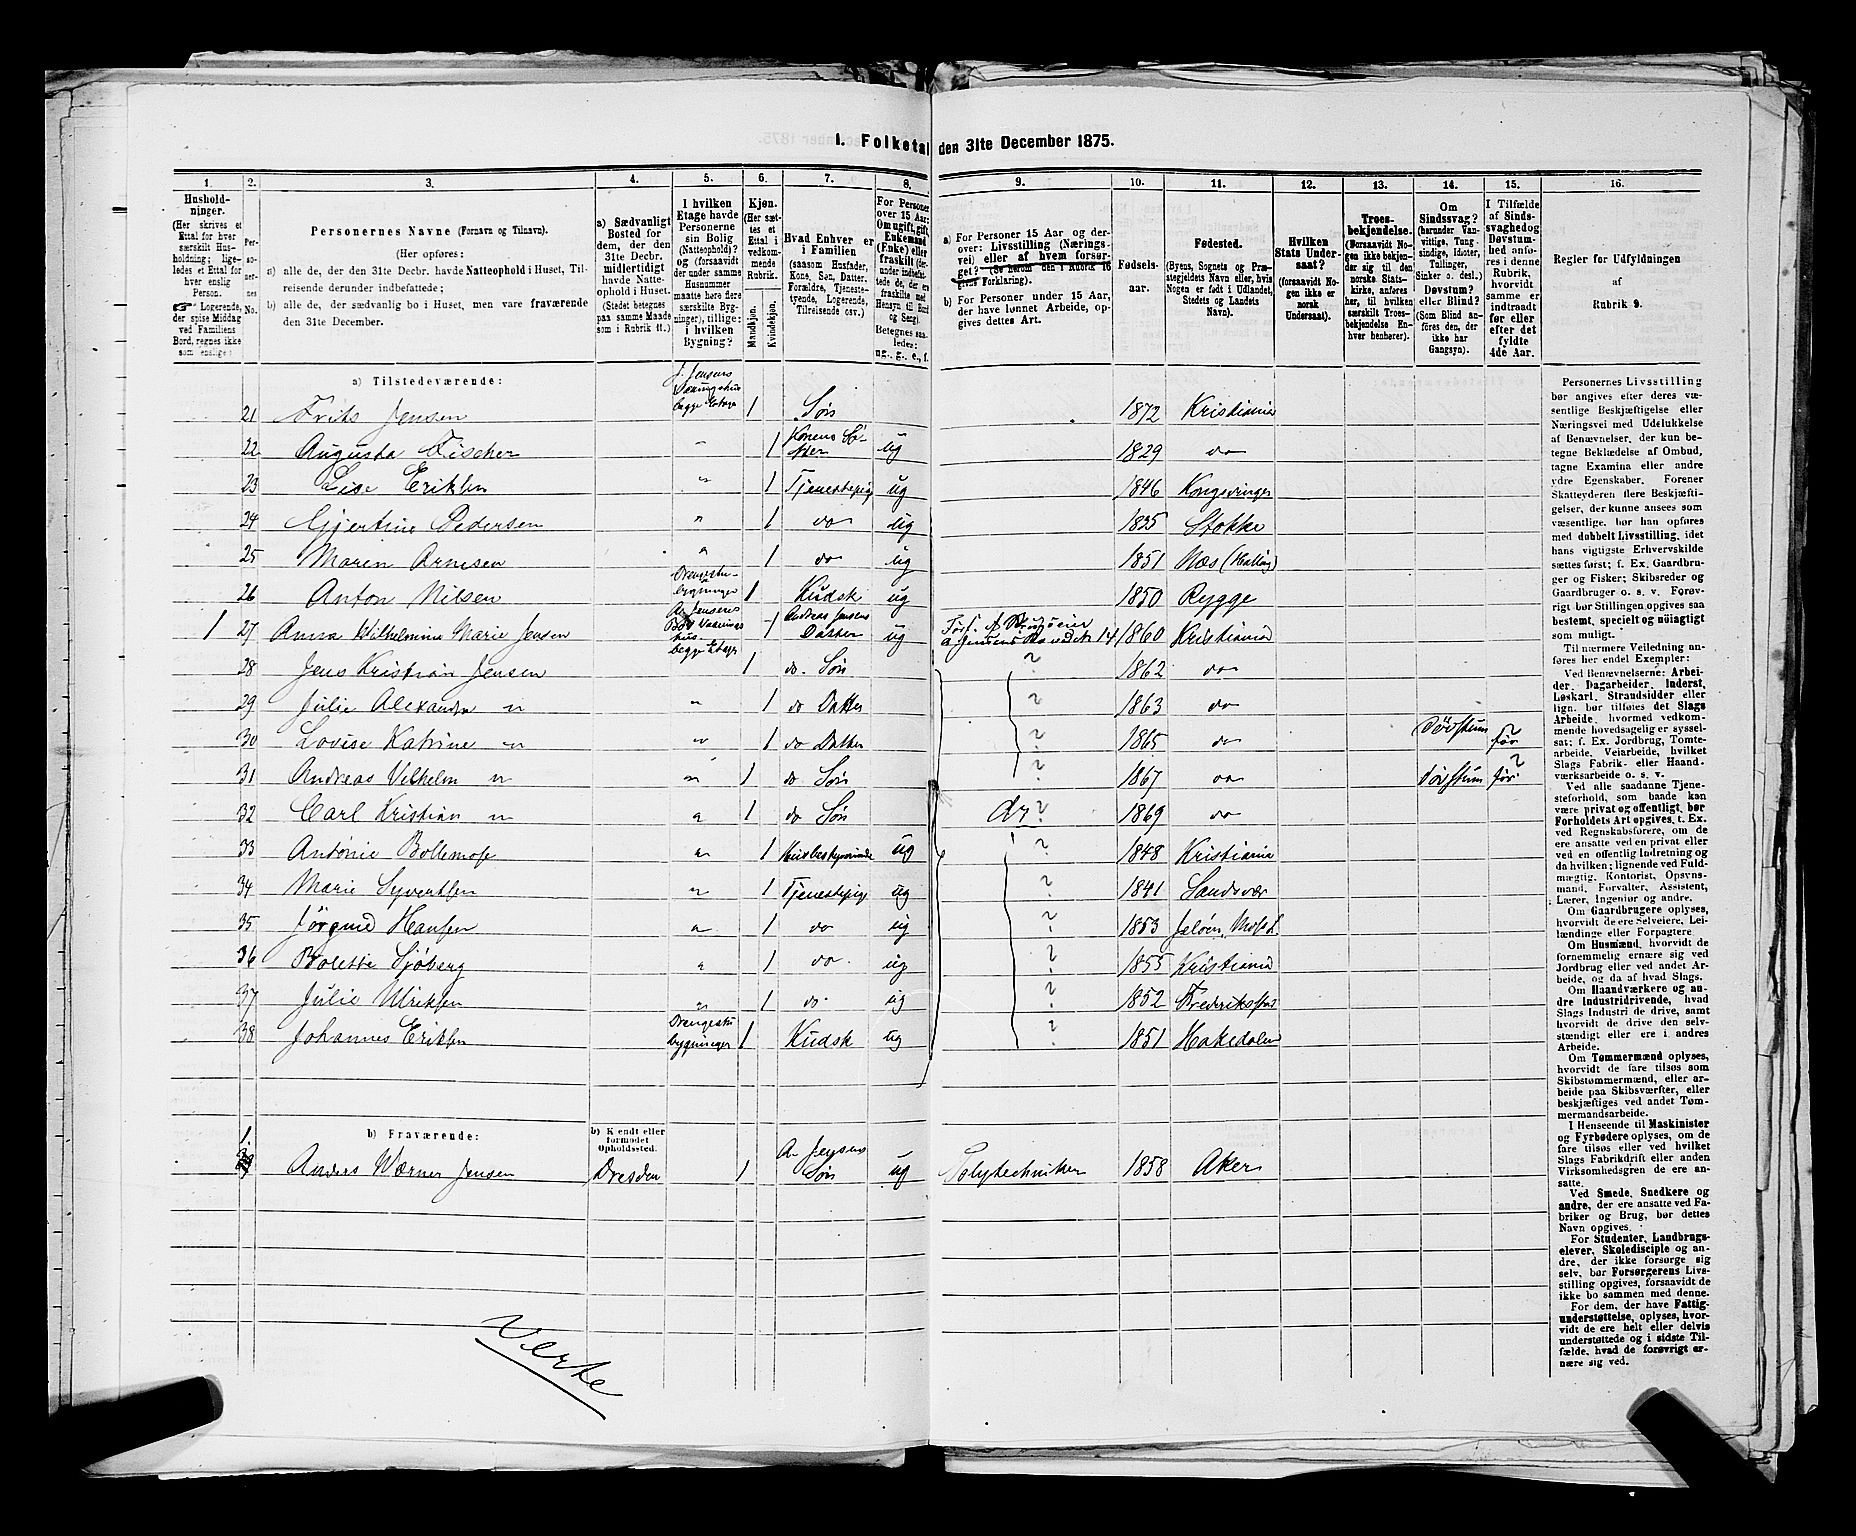 1. Folketal den 31te December 1875.
1. 2. 3. 4. 5. 6. 7. 8. 9. 10. 11. 12. 13. 14. 15. 16.
Hushold-
ninger.
(Her skrives et
Ettal for hver
særskilt Hus-
holdning; lige-
ledes et Ettal for
hver enslig
Person.
☞ Logerende,
der spise Middag
ved Familiens
Bord, regnes ikke
som enslige.)
Per-
so-
ner-
nes
No.
Personernes Navne (Fornavn og Tilnavn).
(Her opføres:
a) alle de, der den 31te Decbr. havde Natteophold i Huset, Til-
reisende derunder indbefattede;
b) alle de, der sædvanlig bo i Huset, men vare fraværende
den 31te December.
a) Sædvanligt
Bosted for
dem, der den
31te Decbr.
midlertidigt
havde Natte-
ophold i Huset.
(Stedet betegnes
paa samme Maade
som i Rubrik 11.)
I hvilken
Etage havde
Personerne
sin Bolig
(Natteophold)?
og (forsaavidt
der under samme
Husnummer
maatte høre flere
særskilte Byg-
ninger), tillige:
i hvilken
Bygning?
Kjøn.
(Her sæt-
tes et
Ettal i
vedkom-
mende
Rubrik.
Mandkjøn.
Kvindekjøn.
Hvad Enhver er
i Familien
(saasom Husfader,
Kone, Søn, Datter,
Forældre, Tjeneste-
tyende, Logerende,
Tilreisende osv.)
For Personer
over 15 Aar:
Om ugift, gift,
Enkemand
(Enke) eller
fraskilt
Betegnes saa-
ledes:
ug., g., e., f.
a) For Personer 15 Aar og der-
over: Livsstilling (Nærings-
vei) eller af hvem forsør-
get? (Se herom den i Rubrik 16
givne Forklaring).
b) For Personer under 15 Aar,
der have lønnet Arbeide, op-
gives dettes Art.
Fødsels-
aar.
Fødested.
(Byens, Sognets og Præ-
stegjeldets Navn eller, hvis
Nogen er født i Udlandet,
Stedets og Landets
Navn).
Hvilken
Stats Under-
saat?
(forsaavidt No-
gen ikke er
norsk
Undersaat).
Troes-
bekjendelse.
(Forsaavidt No-
gen ikke bekjen-
der sig til den
norske Stats-
kirke, anføres
her, til hvilken
særskilt Troes-
bekjendelse En-
hver henhører).
Om
Sindssvag?
(herunder Van-
vittige, Tung-
sindige, Idioter,
Tullinger,
Sinker o. desl.)
Døvstum?
eller Blind?
(Som Blind an-
føres den, der
ikke har
Gangsyn).
I Tilfælde
af Sinds-
svaghed og
Døvstum-
hed anfø-
res i denne
Rubrik,
hvorvidt
samme er
indtraadt
før eller
efter det
fyldte
4de Aar.
Regler for Udfyldningen
af
Rubrik 9.
a) Tilstedeværende:
J. Jensens
Vaaningshus
begge Etager
21 Frits Jensen 1 Søn 1872 Kristiania
22 Augusta Fischer " 1 Konens Sø-
ster ug 1829 do
23 Lise Eriksen " 1 Tjenestepige ug 1846 Kongsvinger
24 Gjertine Pedersen " 1 do ug 1835 Stokke
25 Maren Arnesen " 1 do ug 1851 Næs (Halling)
26 Anton Nilsen Drengestue-
bygningen 1 Kudsk ug 1850 Rygge
1 27 Anna Wilhelmine Marie Jensen A. Jensens
Vaanings
hus
begge Etager 1 Andreas Jensens
Datter ug 1860 Kristiania
28 Jens Kristian Jensen 1 do. Søn ? 1862 do
29 Julie Alexandra " " 1 do Datter ? 1863 do
30 Lovise Katrine " " 1 do Datter ? 1865 do Døvstum før ?
31 Andreas Vilhelm " " 1 do Søn ? 1867 do Døvstum før ?
32 Carl Kristian " " 1 do Søn do ? 1869 do
33 Antonie Bollemose " 1 Husbestyrerinde ug ? 1848 Kristiania
34 Marie Syvertsen " 1 Tjenestepige ug ? 1841 Sandsvær
35 Jørgine Hansen " 1 do ug ? 1853 Jeløen, Moss L.
36 Bolette Sjøberg " 1 do. ug ? 1855 Kristiania
37 Julie Ulriksen " 1 do. ug ? 1852 Frederikstad
38 Johannes Eriksen Drengestue
bygningen 1 Kudsk ug ? 1851 Hakedalen
b) Fraværende:
b) Kjendt eller
formodet
Opholdssted.
1. Anders Wærner Jensen Dresden 1 A. Jensens
Søn ug Polytechniker 1858 Aker
Verte
Personernes Livsstilling
bør angives efter deres væ-
sentlige Beskjæftigelse eller
Næringsvei med Udelukkelse
af Benævnelser, der kun be-
tegne Beklædelse af Ombud,
tagne Examina eller andre
ydre Egenskaber. Forener
Skatteyderen flere Beskjæfti-
gelser, der kunne ansees som
væsentlige, bør han opføres
med dobbelt Livsstilling, idet
hans vigtigste Erhvervskilde
sættes først; f. Ex. Gaardbru-
ger og Fisker; Skibsreder og
Gaardbruger o. s. v. Forøv-
rigt bør Stillingen opgives saa
bestemt, specielt og nøiagtigt
som muligt.
Til nærmere Veiledning an-
føres her endel Exempler:
Ved Benævnelserne: Arbei-
der, Dagarbeider, Inderst,
Løskarl, Strandsidder eller
lign. bør tilføies det Slags
Arbeide, hvormed vedkom-
mende hovedsagelig er syssel-
sat; f. Ex. Jordbrug, Tomte-
arbeide, Veiarbeide, hvilket
Slags Fabrik- eller Haand-
værksarbeide o. s. v.
Ved alle saadanne Tjene-
steforhold, som baade kan
være privat og offentligt, bør
Forholdets Art opgives, t. Ex.
ved Regnskabsførere, om de
ere ansatte ved en privat eller
ved en offentlig Indretning og
da hvilken; lignende ved Fuld-
mægtig, Kontorist, Opsyns-
mand, Forvalter, Assistent,
Lærer, Ingeniør og andre.
Om Gaardbrugere oplyses,
hvorvidt de ere Selveiere, Lei-
lændinge eller Forpagtere.
Om Husmænd, hvorvidt de
fornemmelig ernære sig ved
Jordbrug eller ved andet Ar-
beide, og da af hvad Slags.
Om Haandværkere og an-
dre Industridrivende, hvad
Slags Industri de drive, samt
hvorvidt de drive den selv-
stændigt eller ere i andres
Arbeide.
Om Tømmermænd oplyses,
hvorvidt de fare tilsøs som
Skibstømmermænd, eller ar-
beide paa Skibsværfter, eller
beskjæftiges ved andet Tøm-
mermandsarbeide.
I Henseende til Maskinister
og Fyrbødere oplyses, om de
fare tilsøs eller ved hvilket
Slags Fabrikdrift eller anden
Virksomhedsgren de ere an-
satte.
Ved Smede, Snedkere og
andre, der ere ansatte ved Fa-
briker og Brug, bør dettes
Navn opgives.
For Studenter, Landbrugs-
elever, Skoledisciple og an-
dre, der ikke forsørge sig
selv, bør Forsørgerens Livs-
stilling opgives, forsaavidt de
ikke bo sammen med denne.
For dem, der have Fattig-
understøttelse, oplyses, hvor-
vidt de ere helt eller delvis
understøttede og i sidste Til-
fælde, hvad de forøvrigt er-
nære sig ved.